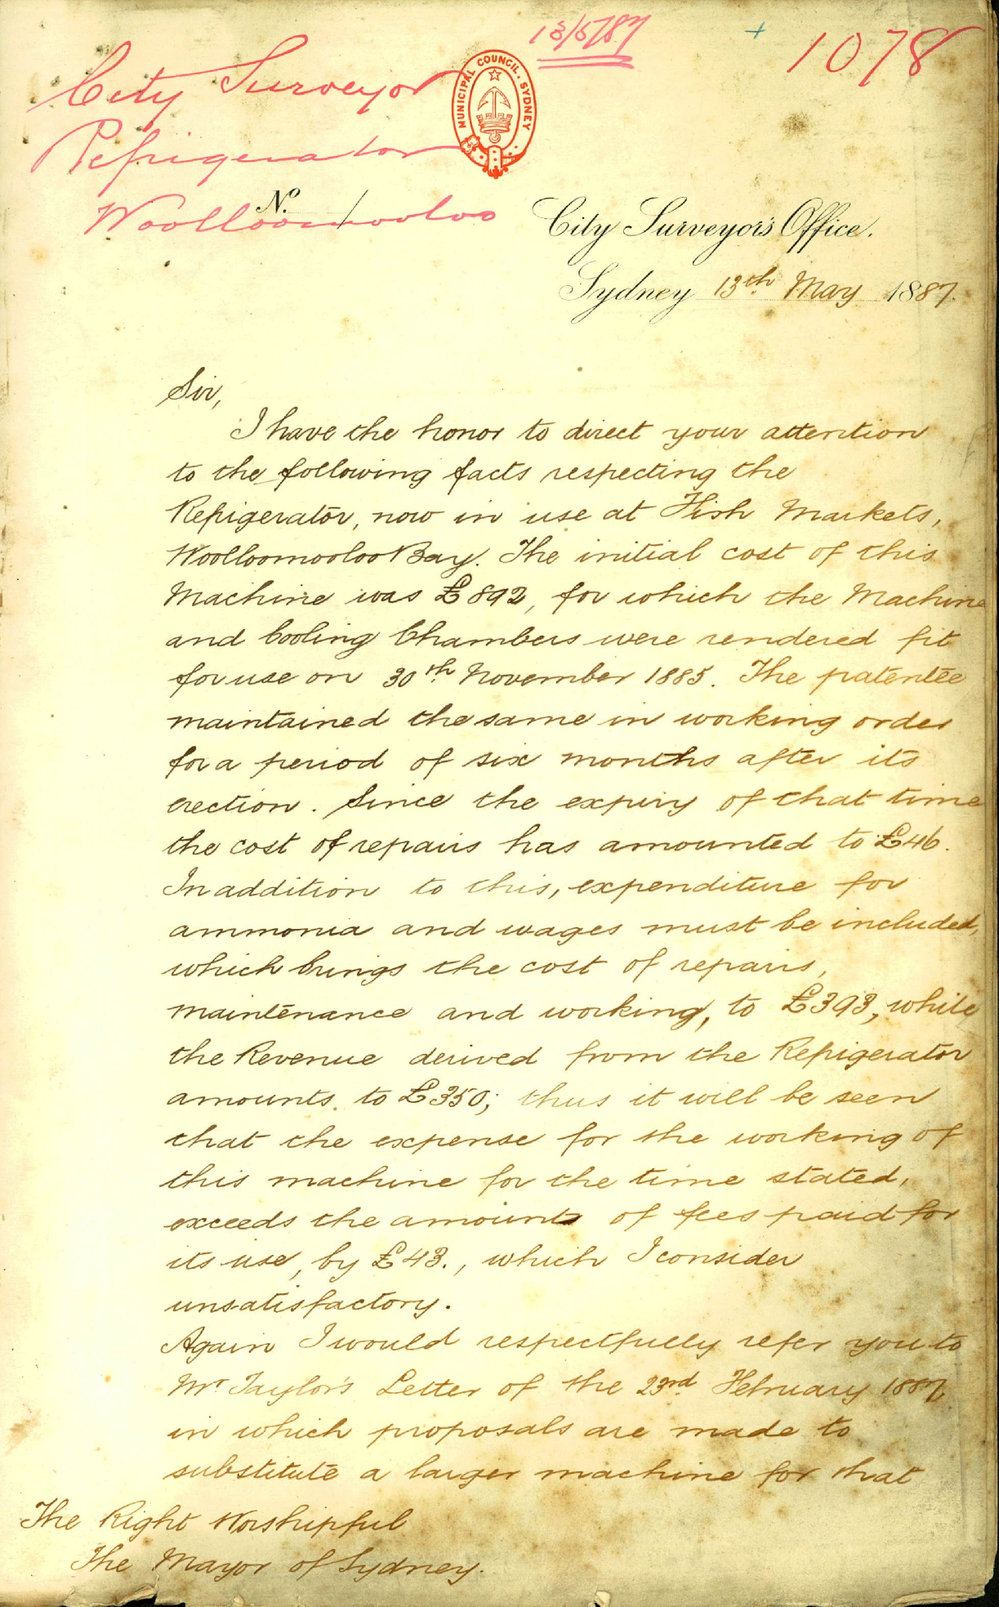 13/5/87
1078
City Surveyor
Refrigerator
Woolloomooloo
MUNICIPAL COUNCIL. SYDNEY
No.
City Surveyor's Office.
Sydney 13th May 1887.
Sir,
I have the honor to direct your attention
to the following facts respecting the
Refrigerator, now in use at Fish Markets,
Woolloomooloo Bay. The initial cost of this
Machine was £892, for which the Machine
and Cooling Chambers were rendered fit
for use on 30th November 1885. The patentee
maintained the same in working order
for a period of six months after its
erection. Since the expiry of that time
the cost of repairs has amounted to £46.
In addition to this, expenditure for
ammonia and wages must be included,
which brings the cost of repairs,
maintenance and working, to £393, while
the Revenue derived from the Refrigerator
amounts to £350; thus it will be seen
that the expense for the working of
this machine for the time stated,
exceeds the amounts of fees paid for
its use, by £43., which I consider
unsatisfactory.
Again I would respectfully refer you to
Mr Taylor's Letter of the 23rd February 1887
in which proposals are made to
substitute a larger machine for that
The Right Worshipful
The Mayor of Sydney.